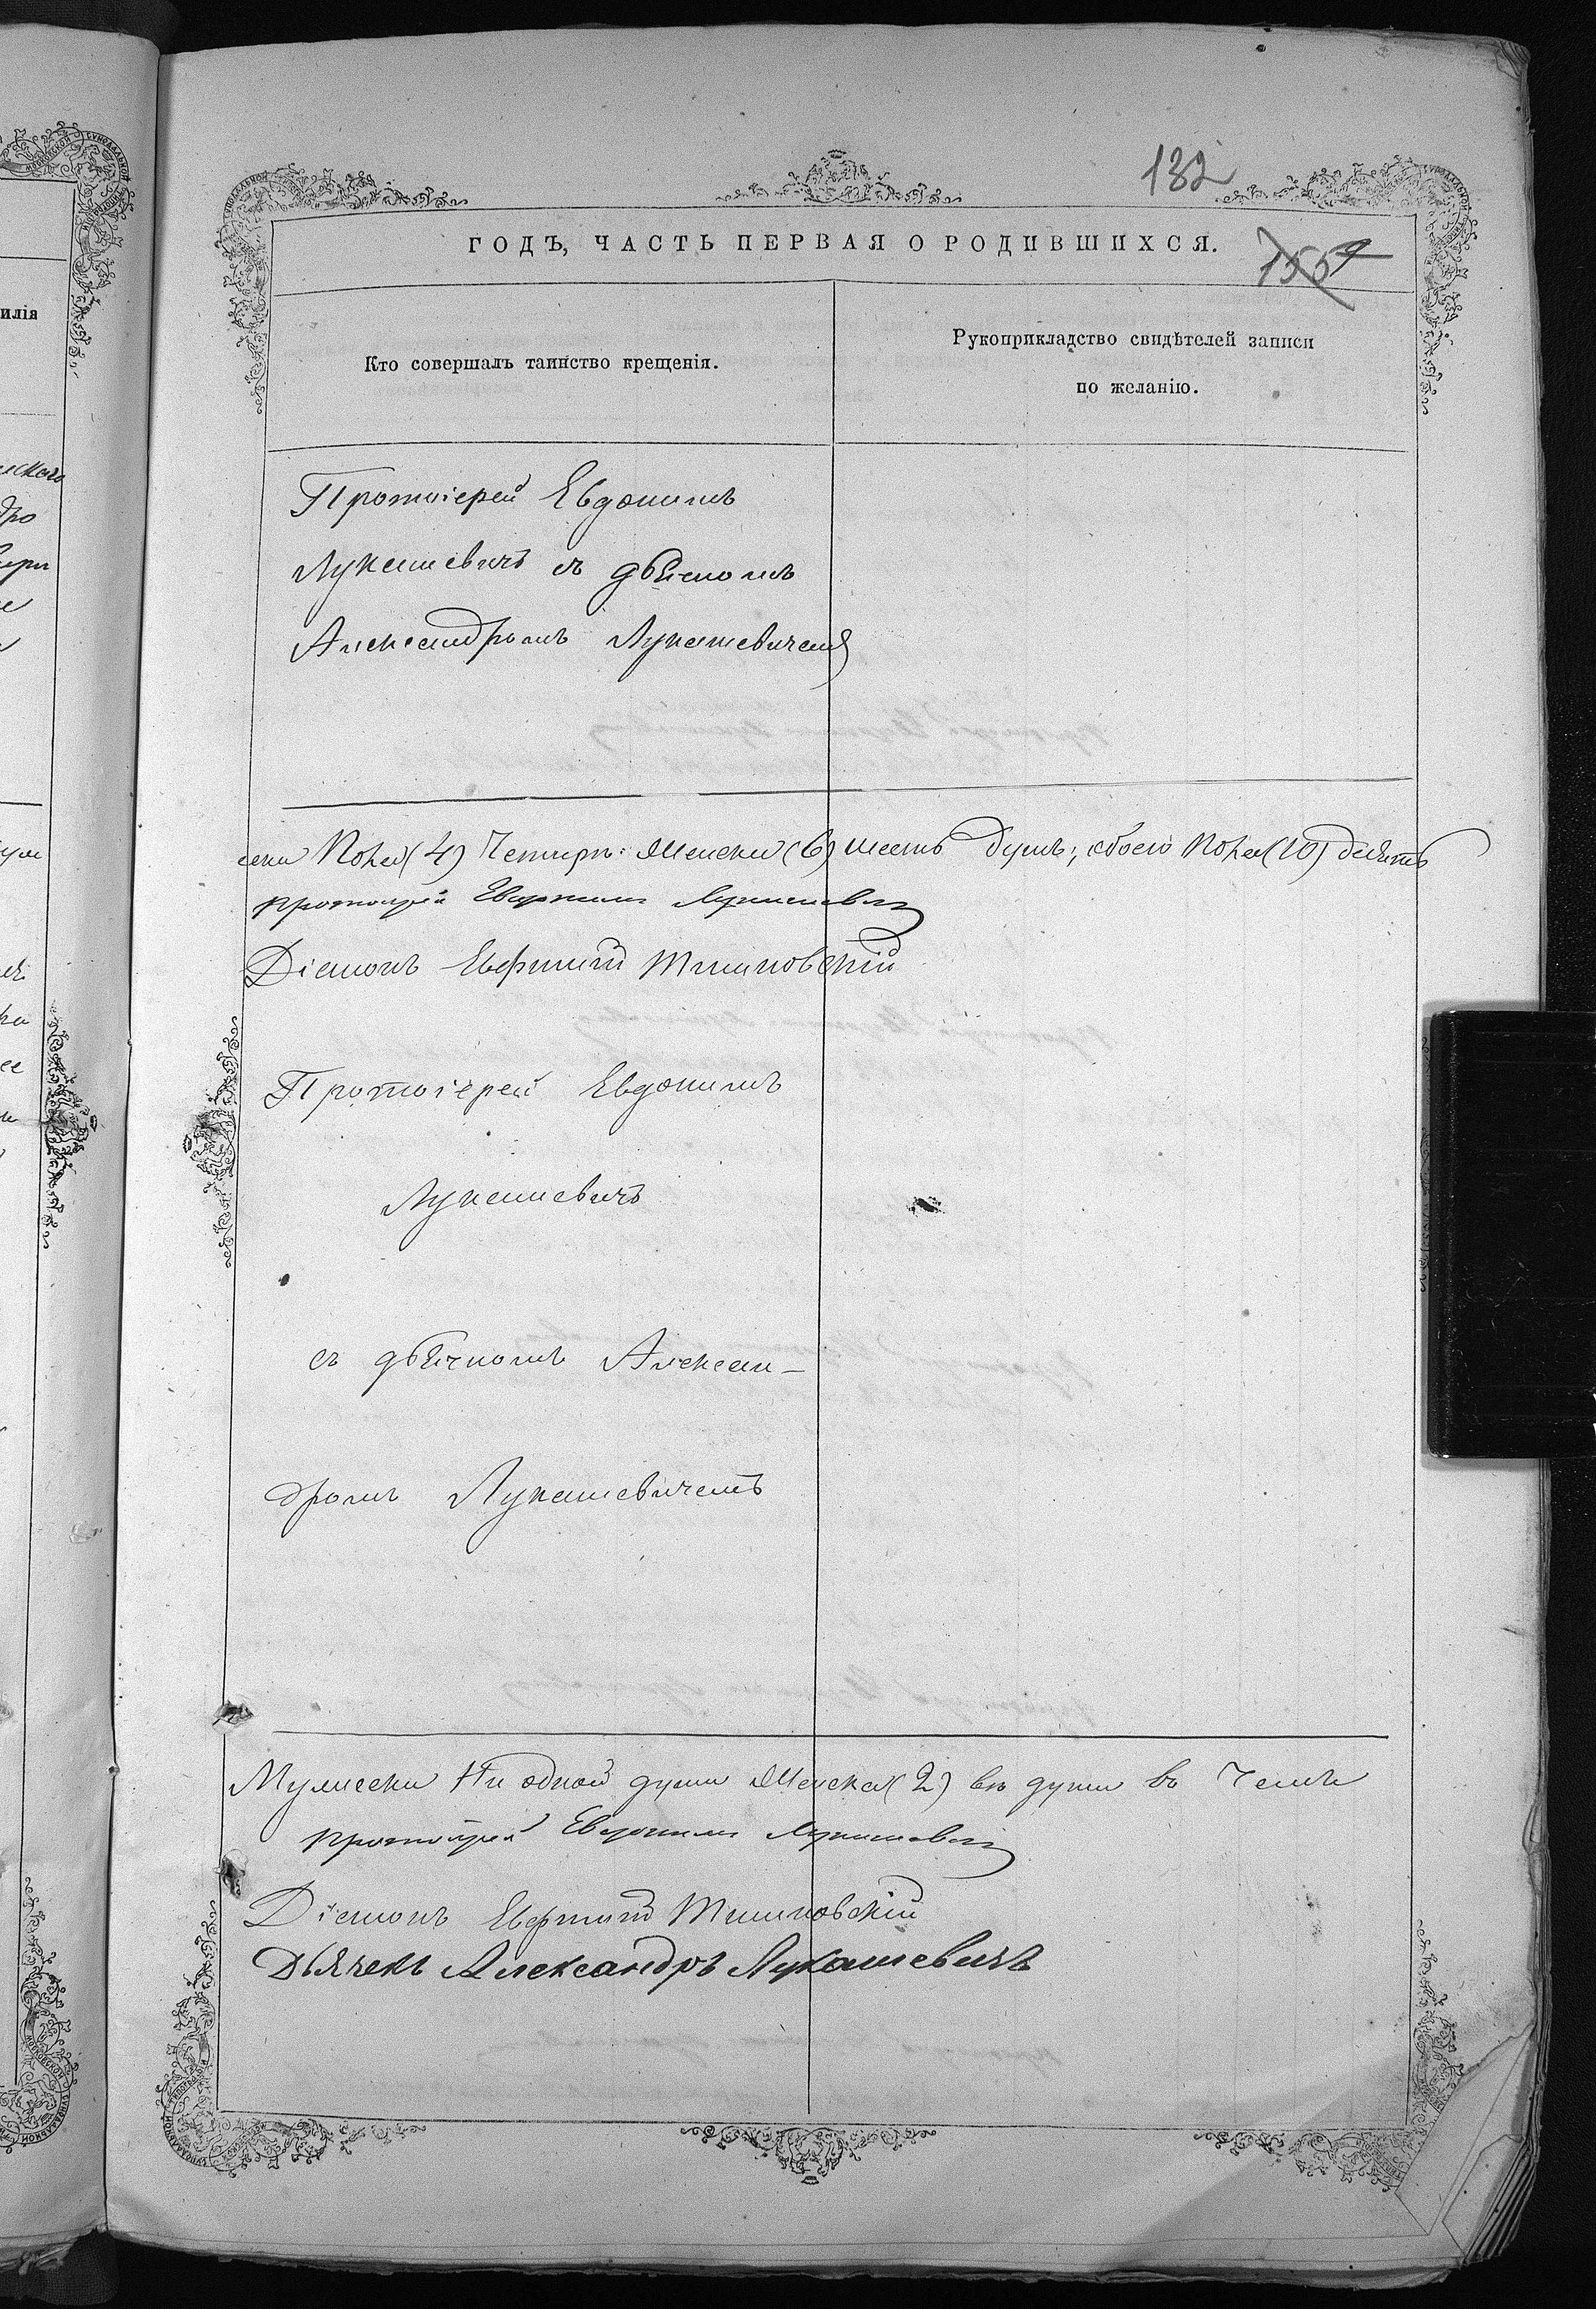 132
ГОДЪ, ЧАСТЬ ПЕРВАЯ О РОДИВШИХСЯ.
Кто совершалъ таинство крещенія.
Рукоприкладство свидѣтелей записи
по желанію.
Протоіерей Евдокимъ
Лукашевичъ съ дьячкомъ
Александромъ Лукашевичемъ
пола (4) Четыри: Женска (6) шесть душъ; обоего пола (10) десять
протоіерей Евдокимъ Лукашевичъ
Діаконъ Евфимій
Протоіерей Евдокимъ
Лукашевичъ
съ дьячкомъ Алексан-
дромъ Лукашевичемъ
Мужеска Ни одной души Женска (2) двѣ души въ Чемъ
протоіерей Евдокимъ Лукашевичъ
Діаконъ Евфимій
Дьячекъ Александръ Лукашевичъ